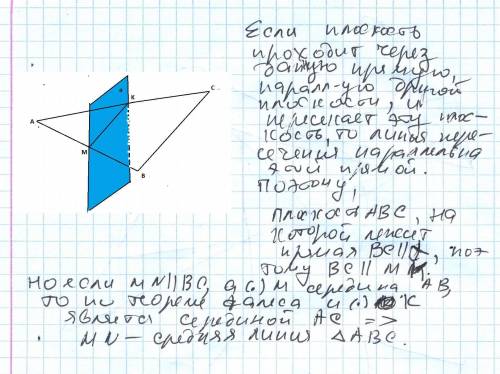 Если плоскость
проходит через
данную прямую,
паралл-ую другой
плоскости, и
пересекает эту плос-
кость, то линия пере-
сечения параллельна
этой прямой.
Поэтому,
плоскость ABC, на
которой лежит
прямая BC||α, поэ
тому BC|| MN.
но если MN||BC, а (·) M середина AB,
то по теореме Фалеса и (·) K
является серединой AC =>
MN – средняя линия ΔABC.
A
K
C
M
B